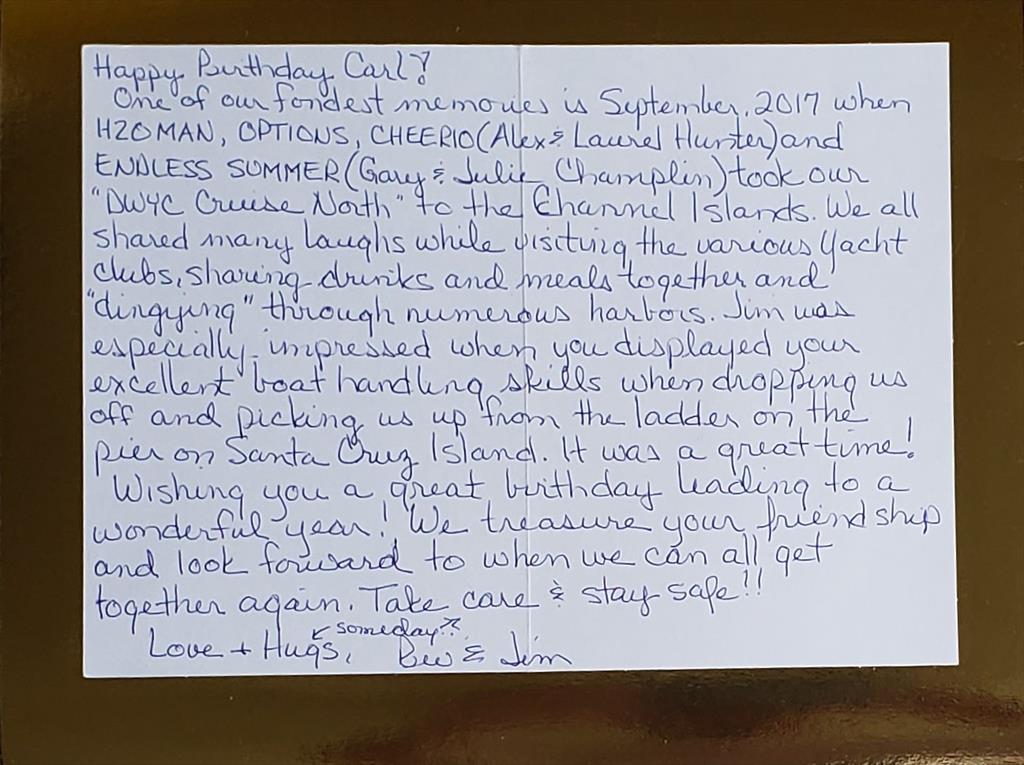 Happy Birthday Carl!
One of our fondest memories is September, 2017 when
H2OMAN, OPTIONS, CHEERIO (Alex & Laurel Hunter) and
ENDLESS SUMMER (Gary & Julie Champlin) took our
"DWYC Cruise North" to the Channel Islands. We all
shared many laughs while visiting the various Yacht
clubs, sharing drinks and meals together and
"dingying" through numerous harbors. Jim was
especially impressed when you displayed your
excellent boat handling skills when dropping us
off and picking us up from the ladder on the
pier on Santa Cruz Island. It was a great time!
Wishing you a great birthday leading to a
wonderful year! We treasure your friendship
and look forward to when we can all get
together again. Take care & stay safe!!
← someday??
Love + Hugs, Bev & Jim